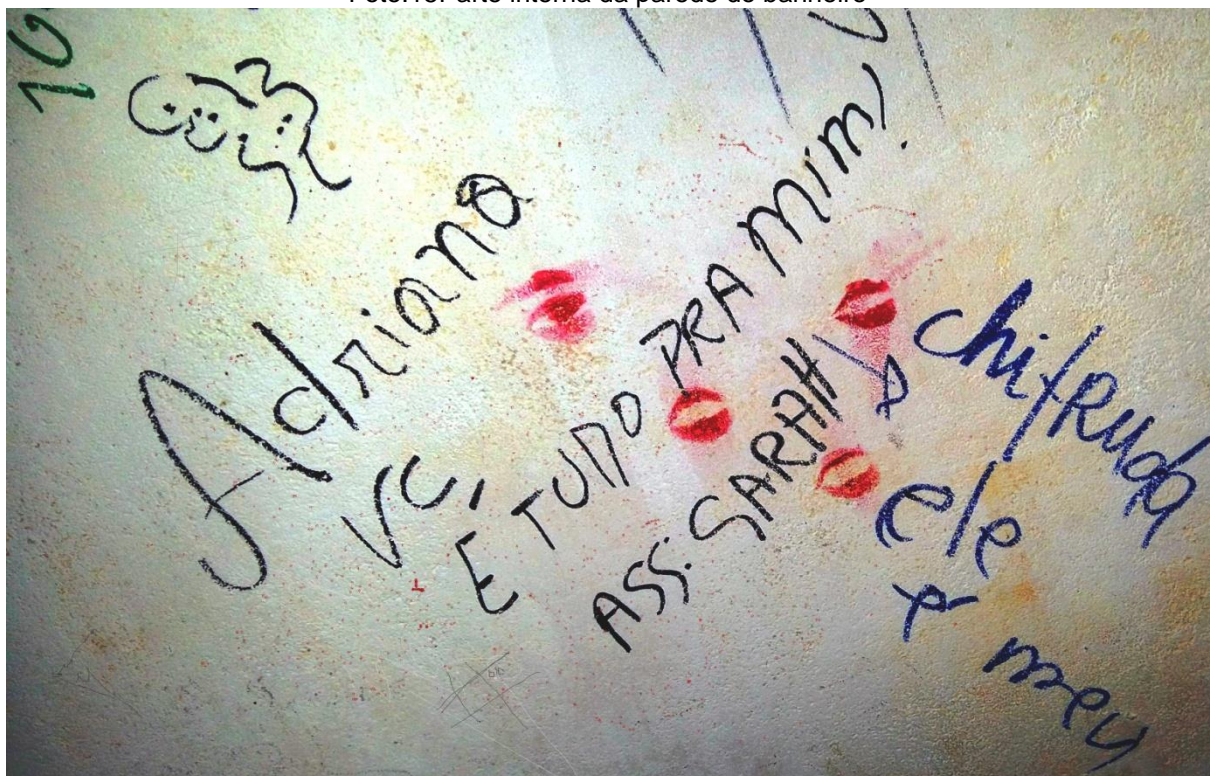 10
Adriano
VC,
É TUDO PRA MIM!
ASS: SARAH
chifRuda
ele
é meu